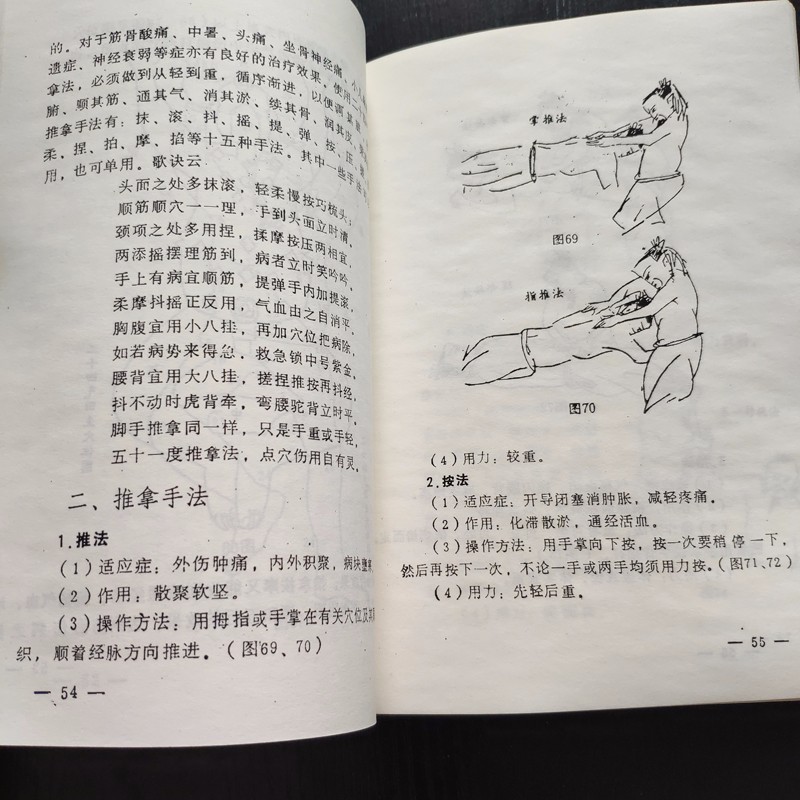 的。对于筋骨酸痛、中暑、头痛、坐骨神经痛、小儿
遗症、神经衰弱等症亦有良好的治疗效果。使用二
拿法，必须做到从轻到重，循序渐进，以便调
腑、顺其筋、通其气、消其淤、续其骨、润其皮
推拿手法有：抹、滚、抖、摇、提、弹、按、压、
柔、捏、拍、摩、掐等十五种手法。其中一些手法
用，也可单用。歌诀云：
头面之处多抹滚，轻柔慢按巧梳头；
顺筋顺穴一一理，手到头面立时清。
颈项之处多用捏，揉摩按压两相宜，
两添摇摆理筋到，病者立时笑吟吟。
手上有病宜顺筋，提弹手内加提滚，
柔摩抖摇正反用，气血由之自消平。
胸腹宜用小八挂，再加穴位把病除，
如若病势来得急，救急锁中号紫金。
腰背宜用大八挂，搓捏推按再抖经，
抖不动时虎背牵，弯腰驼背立时平。
脚手推拿同一样，只是手重或手轻，
五十一度推拿法，点穴伤用自有灵。
二、推拿手法
1.推法
（1）适应症：外伤肿痛，内外积聚，病块
（2）作用：散聚软坚。
（3）操作方法：用拇指或手掌在有关穴位及其
织，顺着经脉方向推进。（图69、70）
— 54 —
掌推法
图69
指推法
图70
（4）用力：较重。
2.按法
（1）适应症：开导闭塞消肿胀，减轻疼痛。
（2）作用：化滞散淤，通经活血。
（3）操作方法：用手掌向下按，按一次要稍停一下，
然后再按下一次，不论一手或两手均须用力按。（图71、72）
（4）用力：先轻后重。
— 55 —